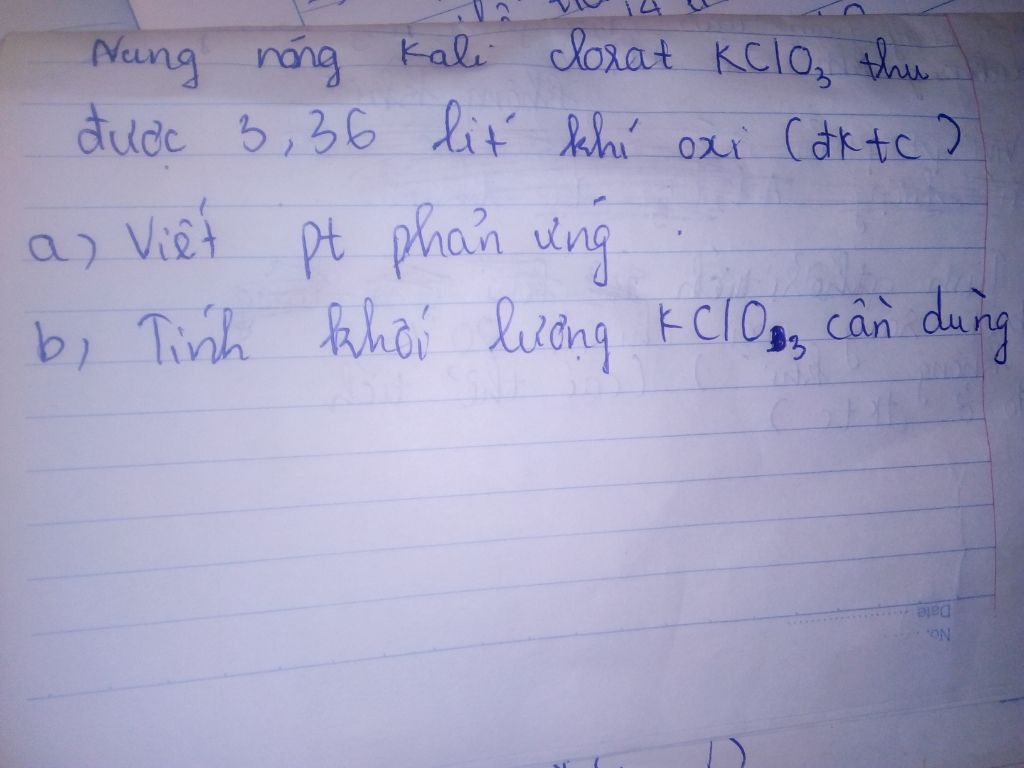 Nung nóng Kali clorat KClO₃ thu
được 3,36 lít khí oxi (đktc)
a) Viết pt phản ứng.
b, Tính khối lượng KClO₃ cần dùng
Date
No.